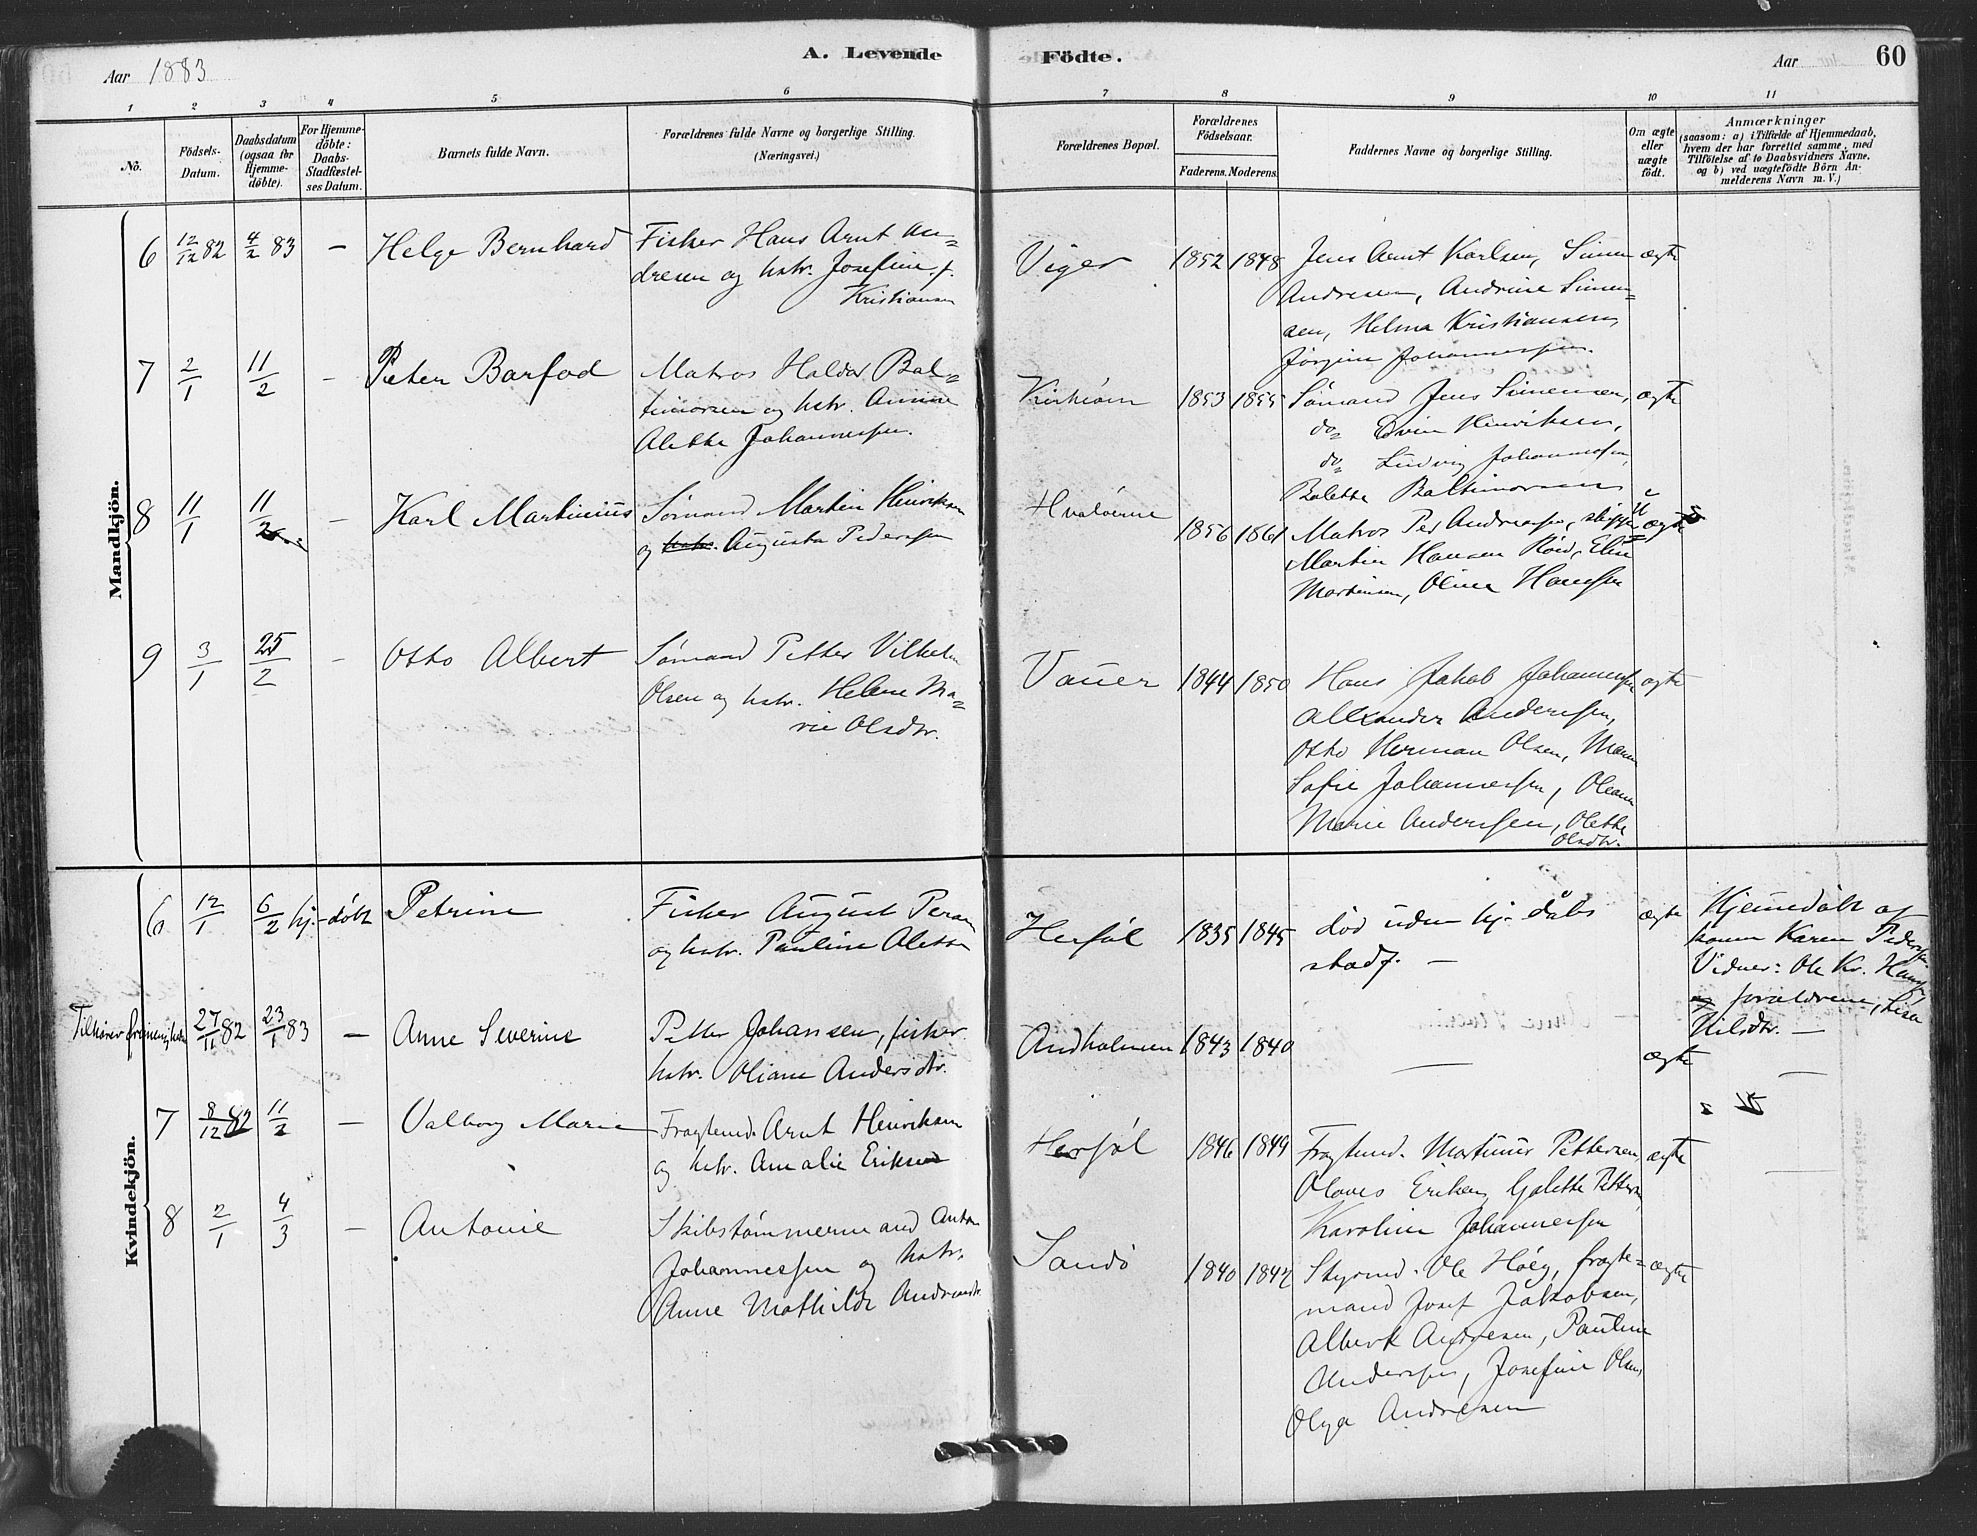 Aar 1883
A. Levende Födte.
Aar
60
1 2 3 4 5 6 7 8 9 10 11
No.
Födsels-Datum.
Daabsdatum (ogsaa for Hjemme-döbte).
For Hjemme-döbte: Daabs-Stadfæstel-ses Datum.
Barnets fulde Navn.
Forældrenes fulde Navne og borgerlige Stilling. (Næringsvei.)
Forældrenes Bopæl.
Forældrenes Födselsaar.
Faderens. Moderens.
Faddernes Navne og borgerlige Stilling.
Om ægte eller uægte födt.
Anmærkninger
(saasom: a) i Tilfælde af Hjemmedaab,
hvem der har forrettet samme, med
Tilföielse af to Daabsvidners Navne.
og b) ved uægtefödte Börn An-
melderens Navn m. V.)
Mandkjön.
6 12/12 82 4/2 83 – Helge Bernhard
Fisker Hans Arnt An=
dresen og hstr. Josefine f.
Kristiansen
Viger 1852 1848
Jens Arnt Karlsen, Simen
Andresen, Andrine Simen=
sen, Helma Kristiansen,
Jörgine Johannessen.
ægte
7 2/1 11/2 – Peter Barfod
Matros Haldor Bal=
timorsen og hstr. Annine
Alette Johannessen.
Kirkeöen 1853 1855
Sømand Jens Simensen,
do= Edvin Henriksen,
do= Ludvig Johannessen,
Balette Baltimorsen
ægte
8 11/1 11/2 – Karl Martinius
Sømand Martin Henriksen
og hstr. Augusta Pedersen
Hvaløerne 1856 1861
Matros Per Andreassen, skipper
Martin Hansen Röd, Elise
Martinsen, Oline Hanssen
u ægte
9 3/1 25/2 – Otto Albert
Sømand Petter Vilhelm
Olsen og hstr. Helene Ma=
rie Olsdtr.
Vauer 1844 1850
Hans Jakob Johannessen
Alexander Anderssen,
Otto Herman Olsen, Maren
Sofie Johannessen, Oleane
Marie Anderssen, Olette
Olsdtr.
ægte
Kvindekjön.
6 12/1 6/2 hj.-döbt Petrine
Fisker August Peran
og hstr. Pauline Alette
Herföl 1835 1845
död uden hj. dåbs
stadf. –
ægte
Hjemmedöbt af
Karen Pedersen.
Vidner: Ole Kr. Hansen
og forældrene, Lisa
Nilsdtr. –
Tilhører
27/11 82 23/1 83 – Anne Severine
Petter Johansen, fisker
hstr. Oliane Andersdtr.
Andholmen 1843 1840 –
ægte –
7 8/12 82 11/2 – Valborg Marie
Fragtemd. Arnt Henriksen
og hstr. Amalie Eriksen
Herföl 1846 1849
Fragtmd. Martinius Pettersen,
Olaves Eriksen, Galette Pettersen
Karoline Johannessen
ægte –
8 2/1 4/3 – Antonie
Skibstømmermand Anton
Johannessen og hstr.
Anne Mathilde Andreasdtr.
Sandö 1840 1842
Styrmd. Ole Höeg, fragte=
mand Josef Jakobsen,
Albert Andresen, Pauline
Anderssen, Josefine Olsen,
Olga Andresen
ægte